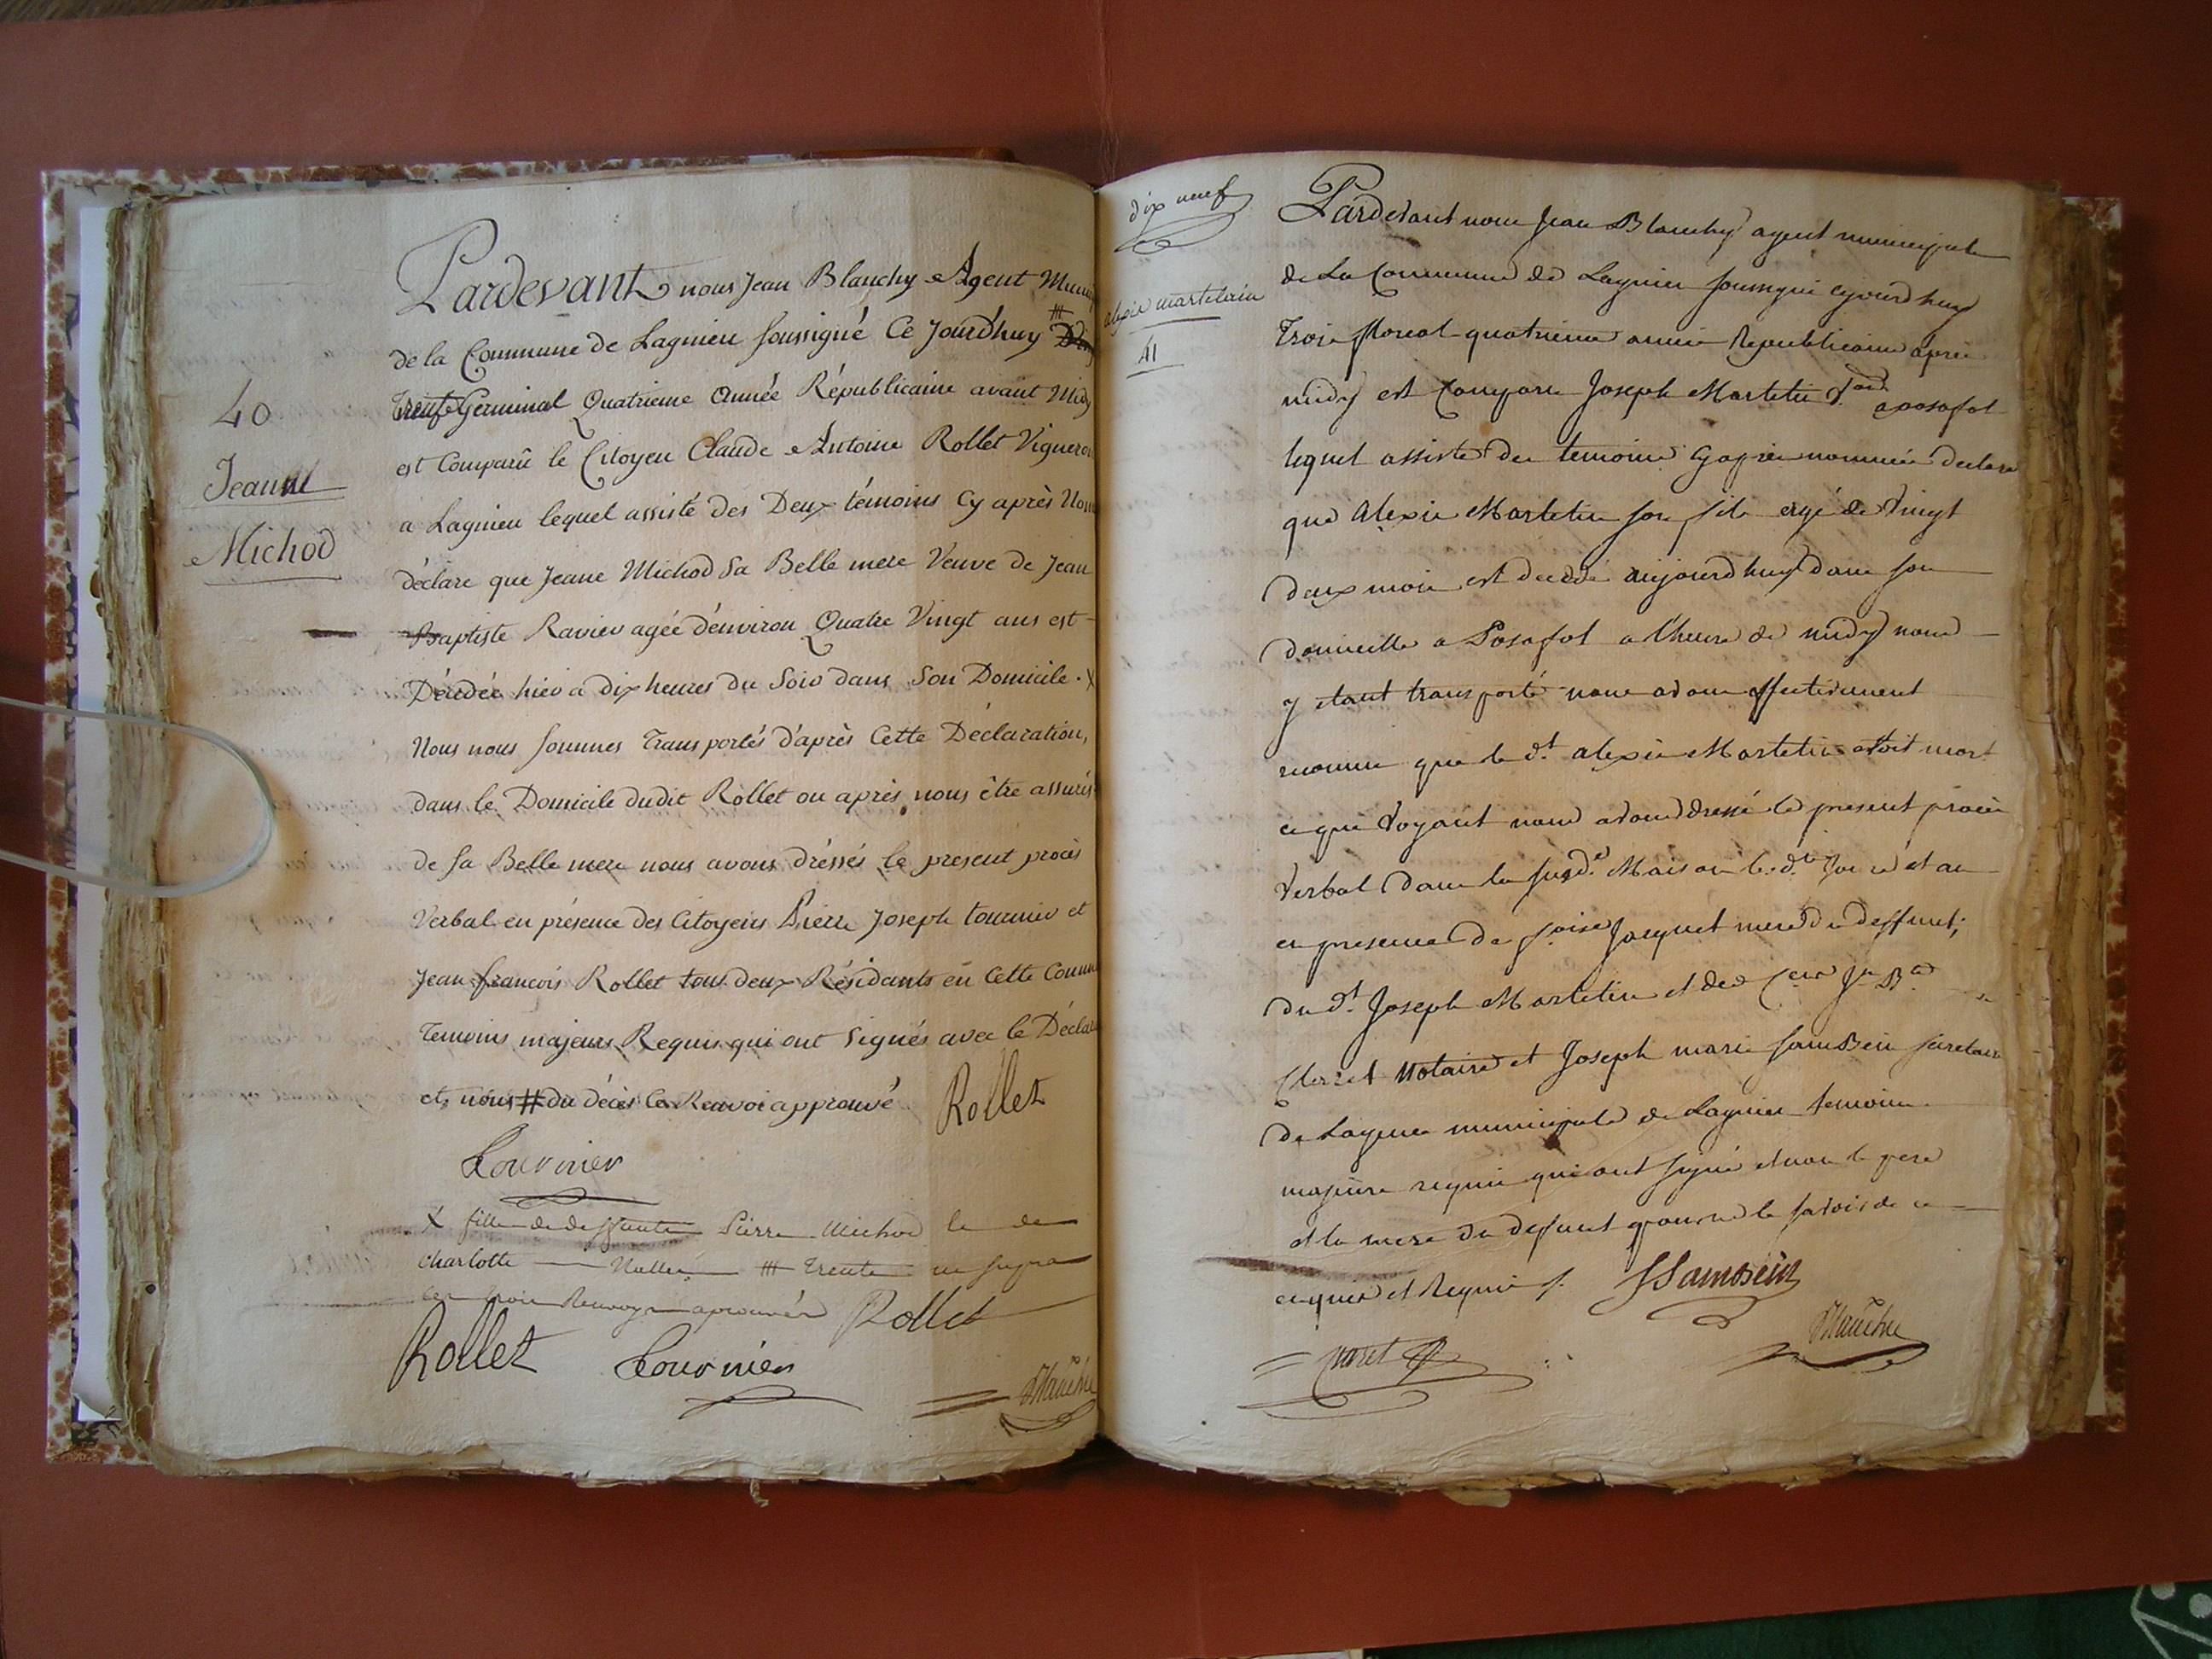 40
Jeanne
Michod
Pardevant nous Jean Blanchy Agent Munip
de la Commune de Lagnieu soussigné Ce Jourd'huy ##
Germinal Quatrieme Année Républicaine avant Midy
est Comparû le Citoyen Claude Antoine Rollet Vigneron
a Lagnieu lequel assisté des Deux témoins Cy après Nom
déclare que Jeane Michod sa Belle mere Veuve de Jean
Baptiste Ravier agée d'environ Quatre Vingt ans est
Décédée hier a dix heures du Soir dans Son Domicile. X
Nous nous sommes Transportés d'après Cette Déclaration,
dans le Domicile dudit Rollet ou après nous être assurés
de sa Belle mere nous avons dréssés le present procès
Verbal en présence des Citoyens Pierre Joseph tournier et
Jean francois Rollet tous deux Résidants en Cette Commu
Temoins majeurs Requis qui ont signés avec le Déclar
et nous # du décès Ce Renvoi approuvé
Rollet
Tournier
X fille de deffunts Pierre Michod
Charlotte ### trente
les trois Renvoys aprouvés Rollet
Rollet Tournier
Blanchy
dix neuf
alexis martelain
41
Pardevant nous Jean Blanchy agent municipale
de La Commune de Lagnieu soussigné cejourd huy
Trois floreal quatrieme année Republicaine après
midy est Comparu Joseph Martelin
a posafol
lequel assisté des temoins cy après nommés declare
que Alexis Martelin son fils agé de Vingt
deux mois est decedé aujourd huy dans son
domicille a Posafol a l'heure de midy nous
y etant transporté nous avons effectivement
reconnu que le dt alexis Martelin etoit mort
ce que Voyant nous avons dressé le present procès
Verbal dans la susd. Maison les dts Jour et an
en presence de foise Jacquet mere du deffunt,
du dt Joseph Martelin et des Cens Jn Bte
Notaire et Joseph marie secretaire
de Lagence municipale de Lagnieu temoins
majeurs requis qui ont signé et non le pere
et la mere du defunt pour ne le savoir de ce
enquis et Requis
Blanchy